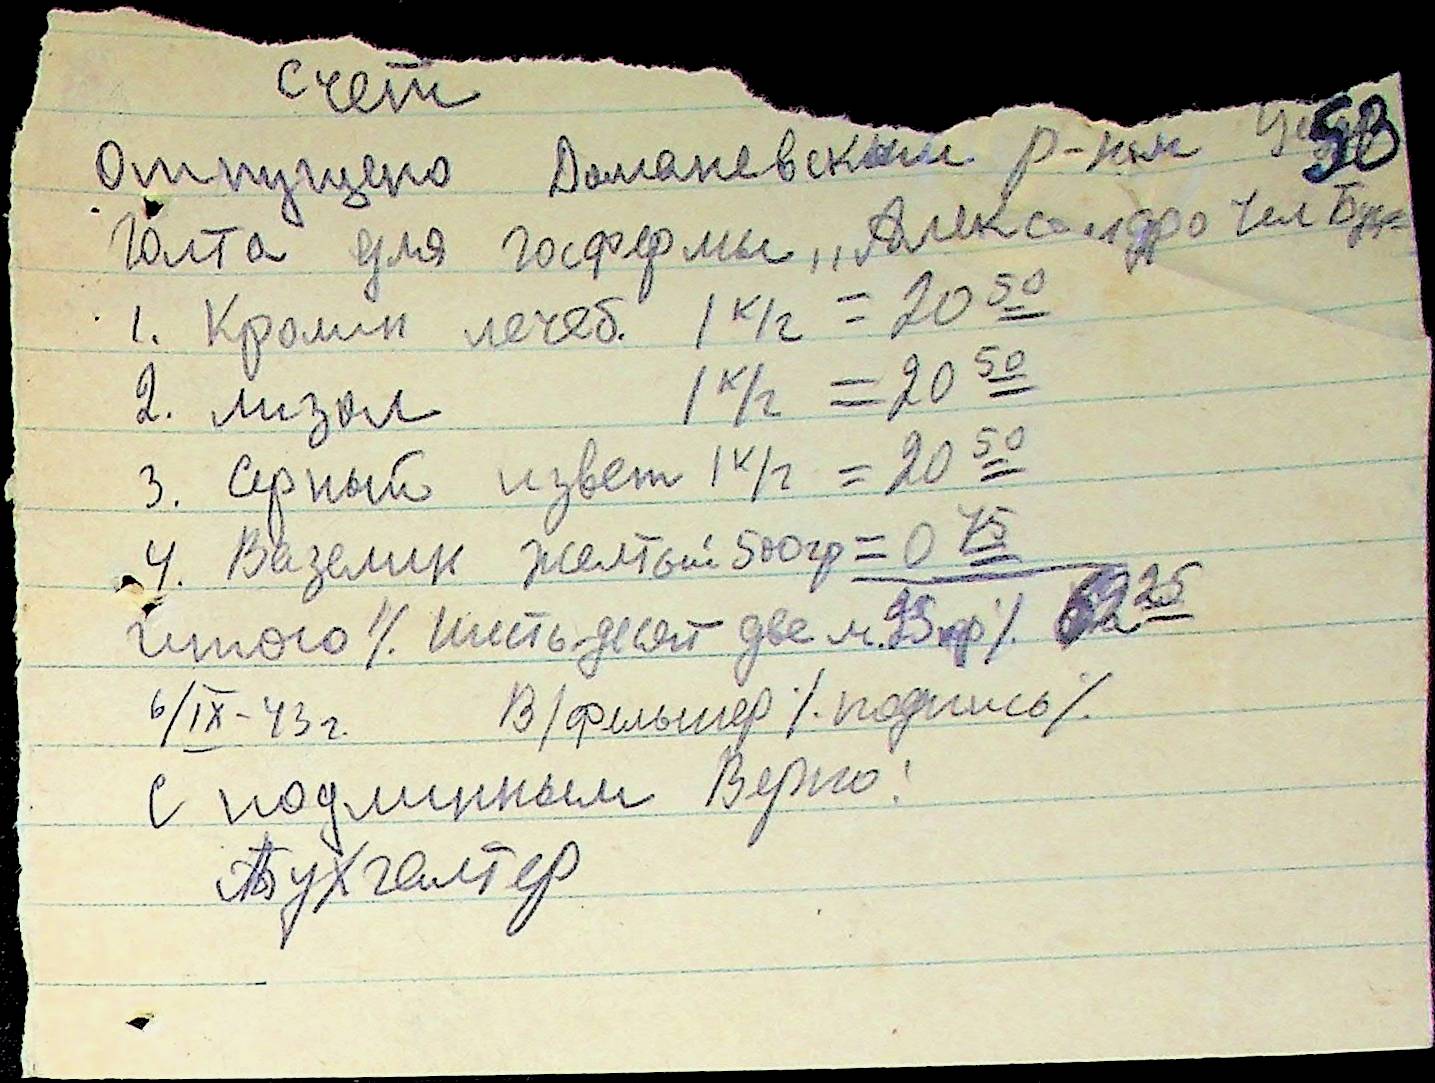 Счет
58
Отпущено Доманевским р-ном
Голта для госфермы „Александро
1. Кролин лечеб. 1 к/г = 20 50
2. лизол 1 к/г = 20 50
3. Серный цвет 1 к/г = 20 50
4. Вазелин желтый 500 гр = 0 75
Итого /. Шестьдесят две м. 25 пф /. 62 25
6/IX-43 г. В/фельшер /. подпись /.
С подлинным Верно!
Бухгалтер